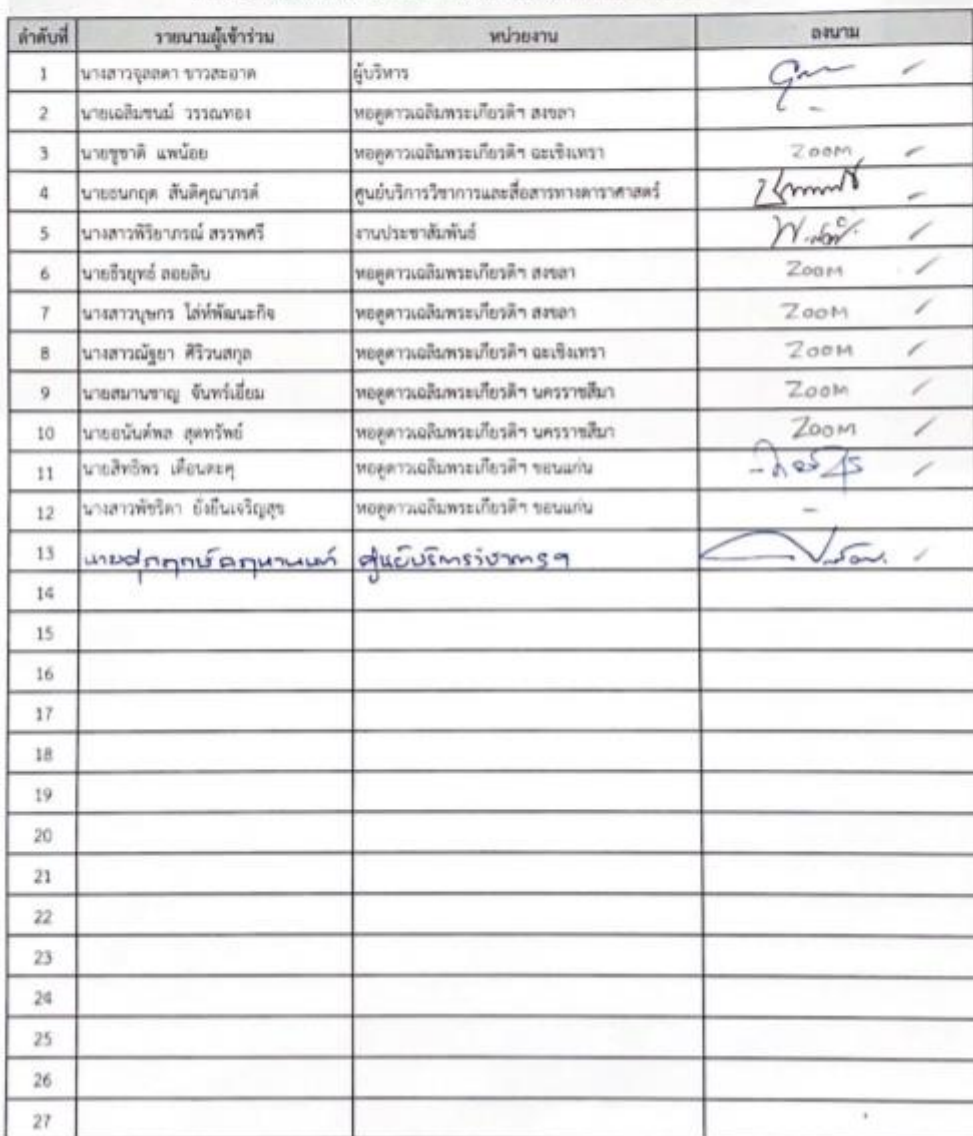 ลำดับที่ รายนามผู้เข้าร่วม หน่วยงาน ลงนาม
1 นางสาวจุลลดา ขาวสะอาด ผู้บริหาร
2 นายเฉลิมชนม์ วรรณทอง หอดูดาวเฉลิมพระเกียรติฯ สงขลา -
3 นายชูชาติ แพน้อย หอดูดาวเฉลิมพระเกียรติฯ ฉะเชิงเทรา ZOOM
4 นายธนกฤต สันติคุณาภรต์ ศูนย์บริการวิชาการและสื่อสารทางดาราศาสตร์
5 นางสาวพิริยาภรณ์ สรรพศรี งานประชาสัมพันธ์
6 นายธีรยุทธ์ ลอยลิบ หอดูดาวเฉลิมพระเกียรติฯ สงขลา ZOOM
7 นางสาวบุษกร ไล่ห์พัฒนะกิจ หอดูดาวเฉลิมพระเกียรติฯ สงขลา ZOOM
8 นางสาวณัฐยา ศิริวนสกุล หอดูดาวเฉลิมพระเกียรติฯ ฉะเชิงเทรา ZOOM
9 นายสมานชาญ จันทร์เอี่ยม หอดูดาวเฉลิมพระเกียรติฯ นครราชสีมา ZOOM
10 นายอนันต์พล สุดทรัพย์ หอดูดาวเฉลิมพระเกียรติฯ นครราชสีมา ZOOM
11 นายสิทธิพร เดือนตะคุ หอดูดาวเฉลิมพระเกียรติฯ ขอนแก่น
12 นางสาวพัชริดา ยั่งยืนเจริญสุข หอดูดาวเฉลิมพระเกียรติฯ ขอนแก่น -
13 นายศุภฤกษ์ คฤหานนท์ ศูนย์บริการวิชาการฯ
14
15
16
17
18
19
20
21
22
23
24
25
26
27